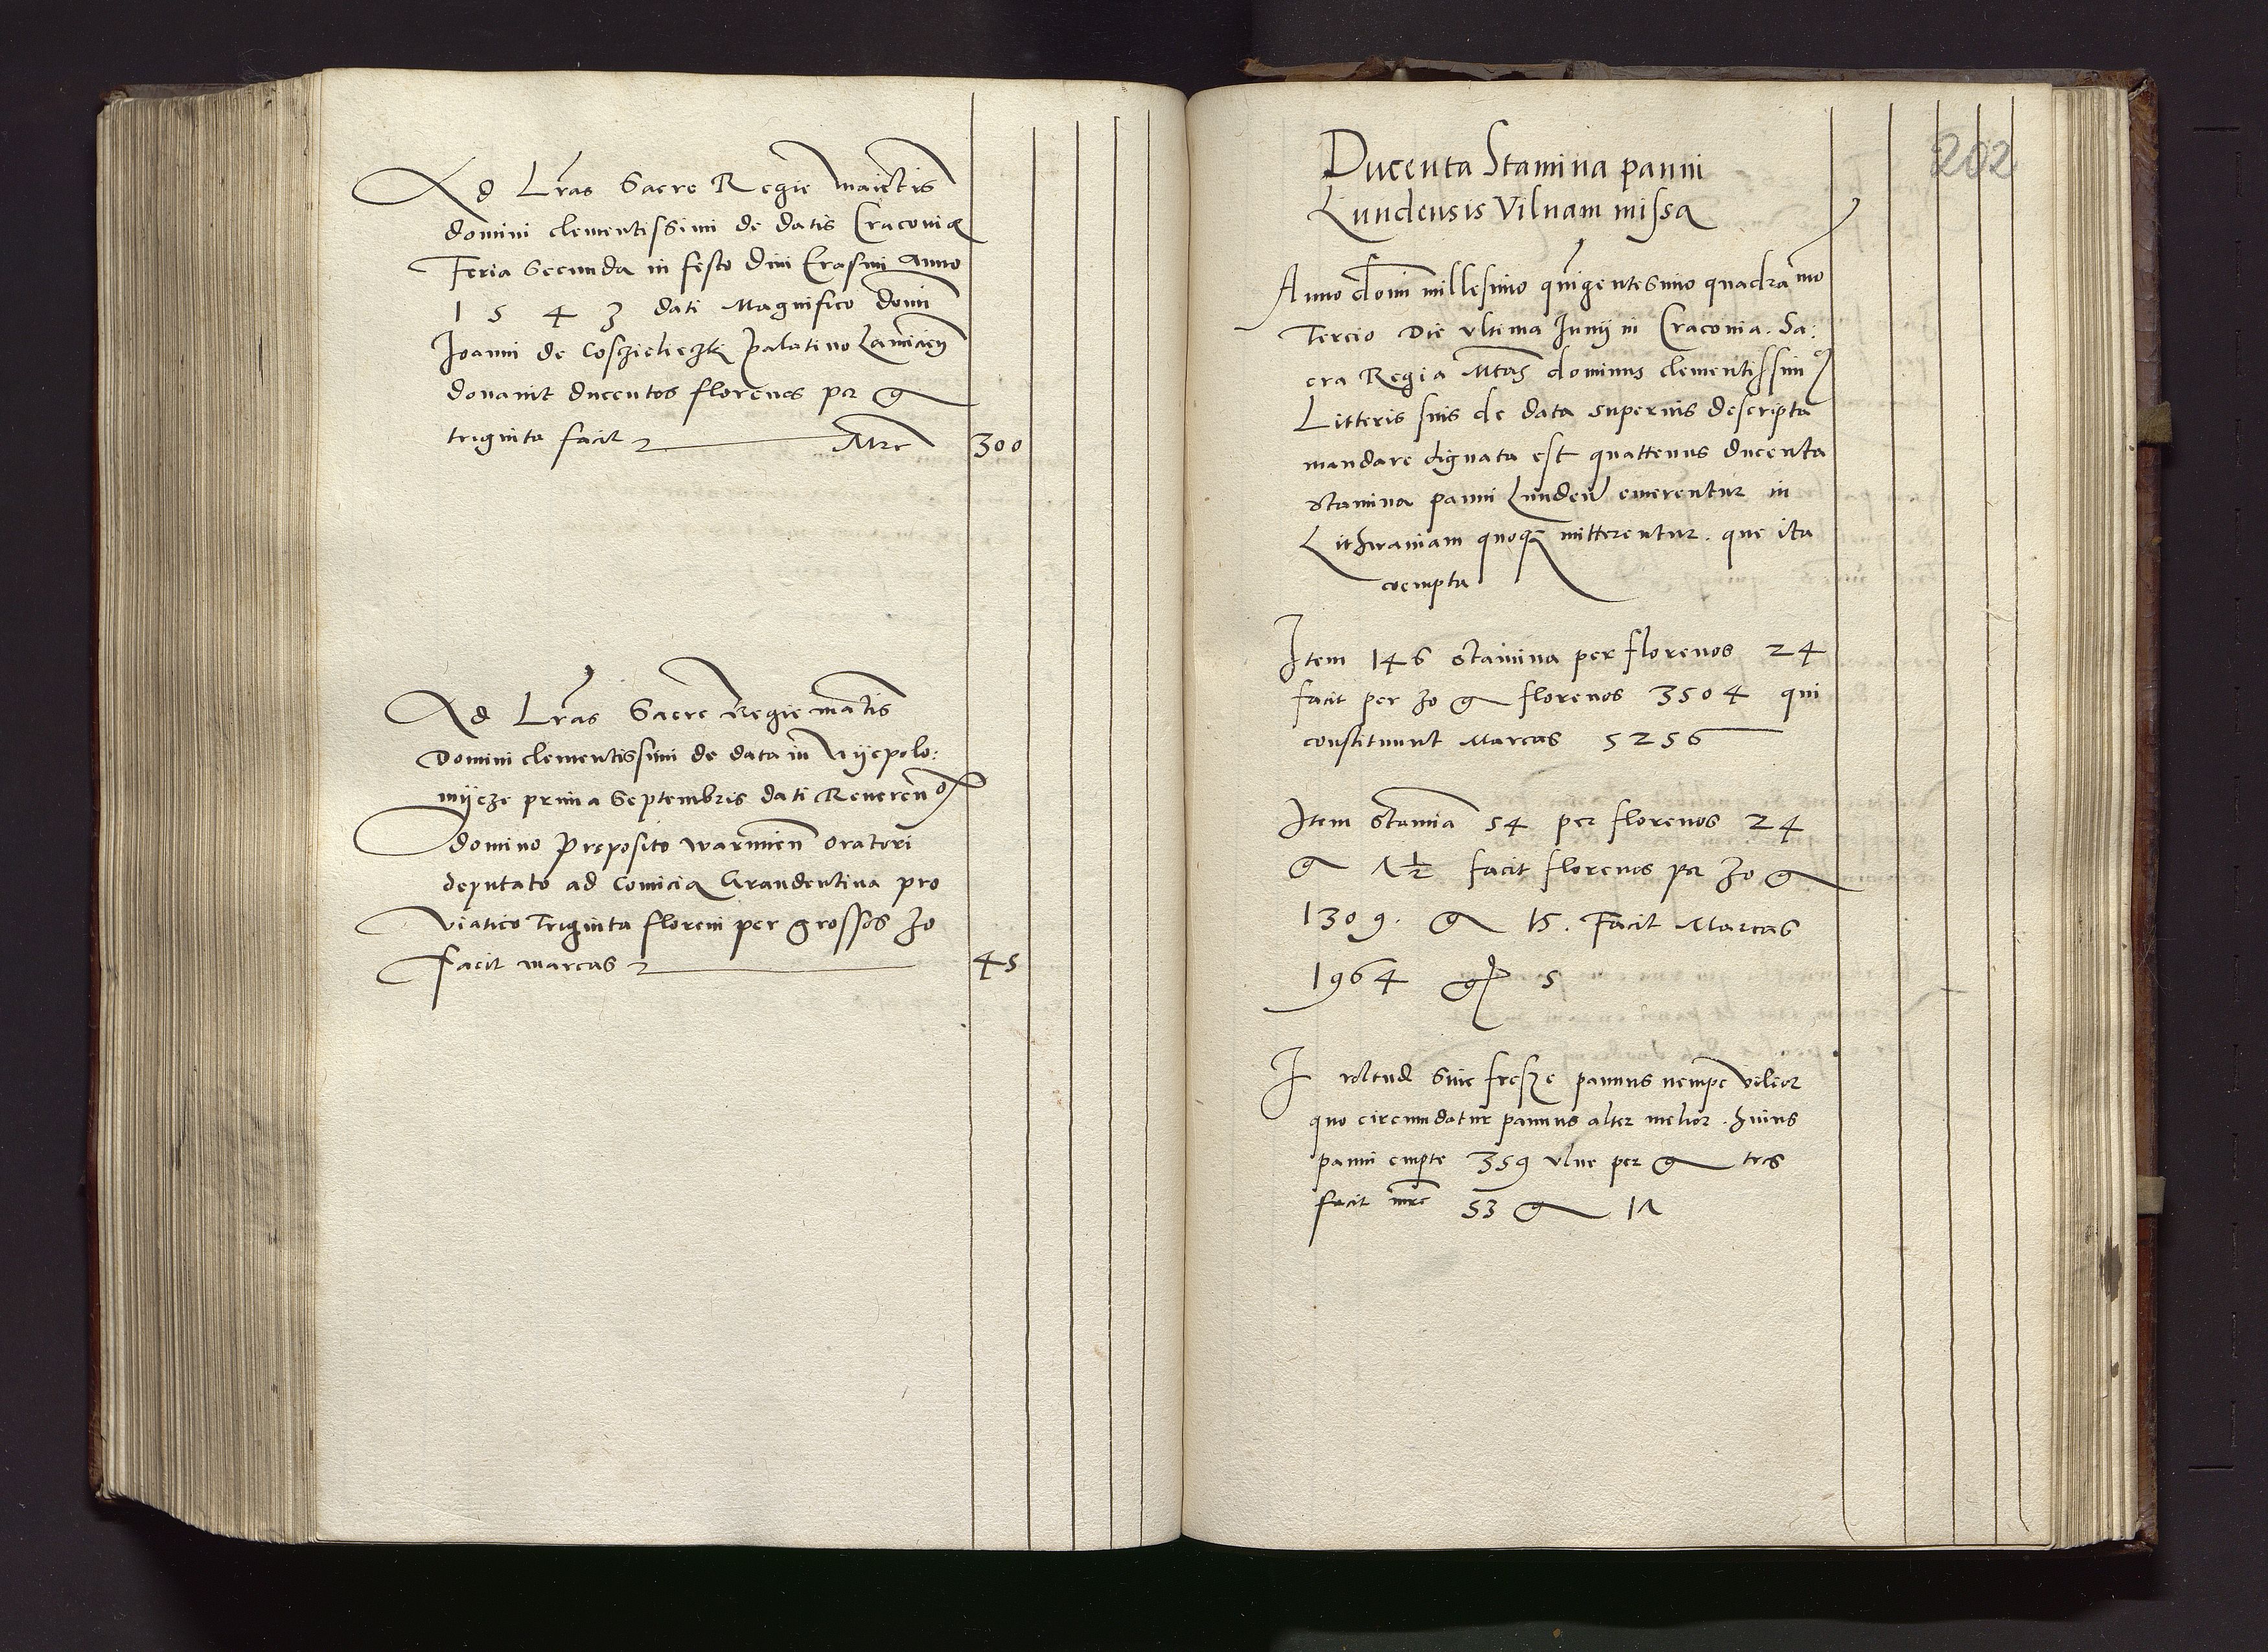 Ad Lras Sacre Regie maiestis
domini clementissimi de datis Cracouia
Feria Secunda in festo diui Erasmi Anno
1 5 4 3 dati Magnifico domi
Joanni de Cosczielieczki palatino Lanicien
donauit ducentos florenos per g
triginta facit Mrc 300
Ad Lras Sacre Regie maatis
Domini clementissimi de data in Nyepolo:
mycze prima Septembris dati Reueren
domino preposito warmien oratori
deputato ad Comicia Graudentina pro
viatico Triginta floreni per grossos 30
Facit marcas 45
202
Ducenta Stamina panni
Lundensis Vilnam missa
Anno domi millesimo quingentesimo quadramo
Tercio Die vltima Junij in Cracouia. Sa:
cra Regia Mtas dominus clementissim9
Litteris suis de data superius descripta
mandare dignata est quattenus ducenta
stamina panni Lunden emerentur in
Lithwaniam quoq mitterentur. que ita
coempta
Item 146 stamina per florenos 24
facit per 30 g florenos 3504 qui
constituunt Marcas 5256
Item stamia 54 per florenos 24
g 7½ facit florenos per 30 g
1309. g 15. Facit Marcas
1964 g 5
I sine fresze pannus nempe vilior
quo circumdatur pannus alter melior. huius
panni empte 359 vlne per g tres
facit mrc 53 g 17